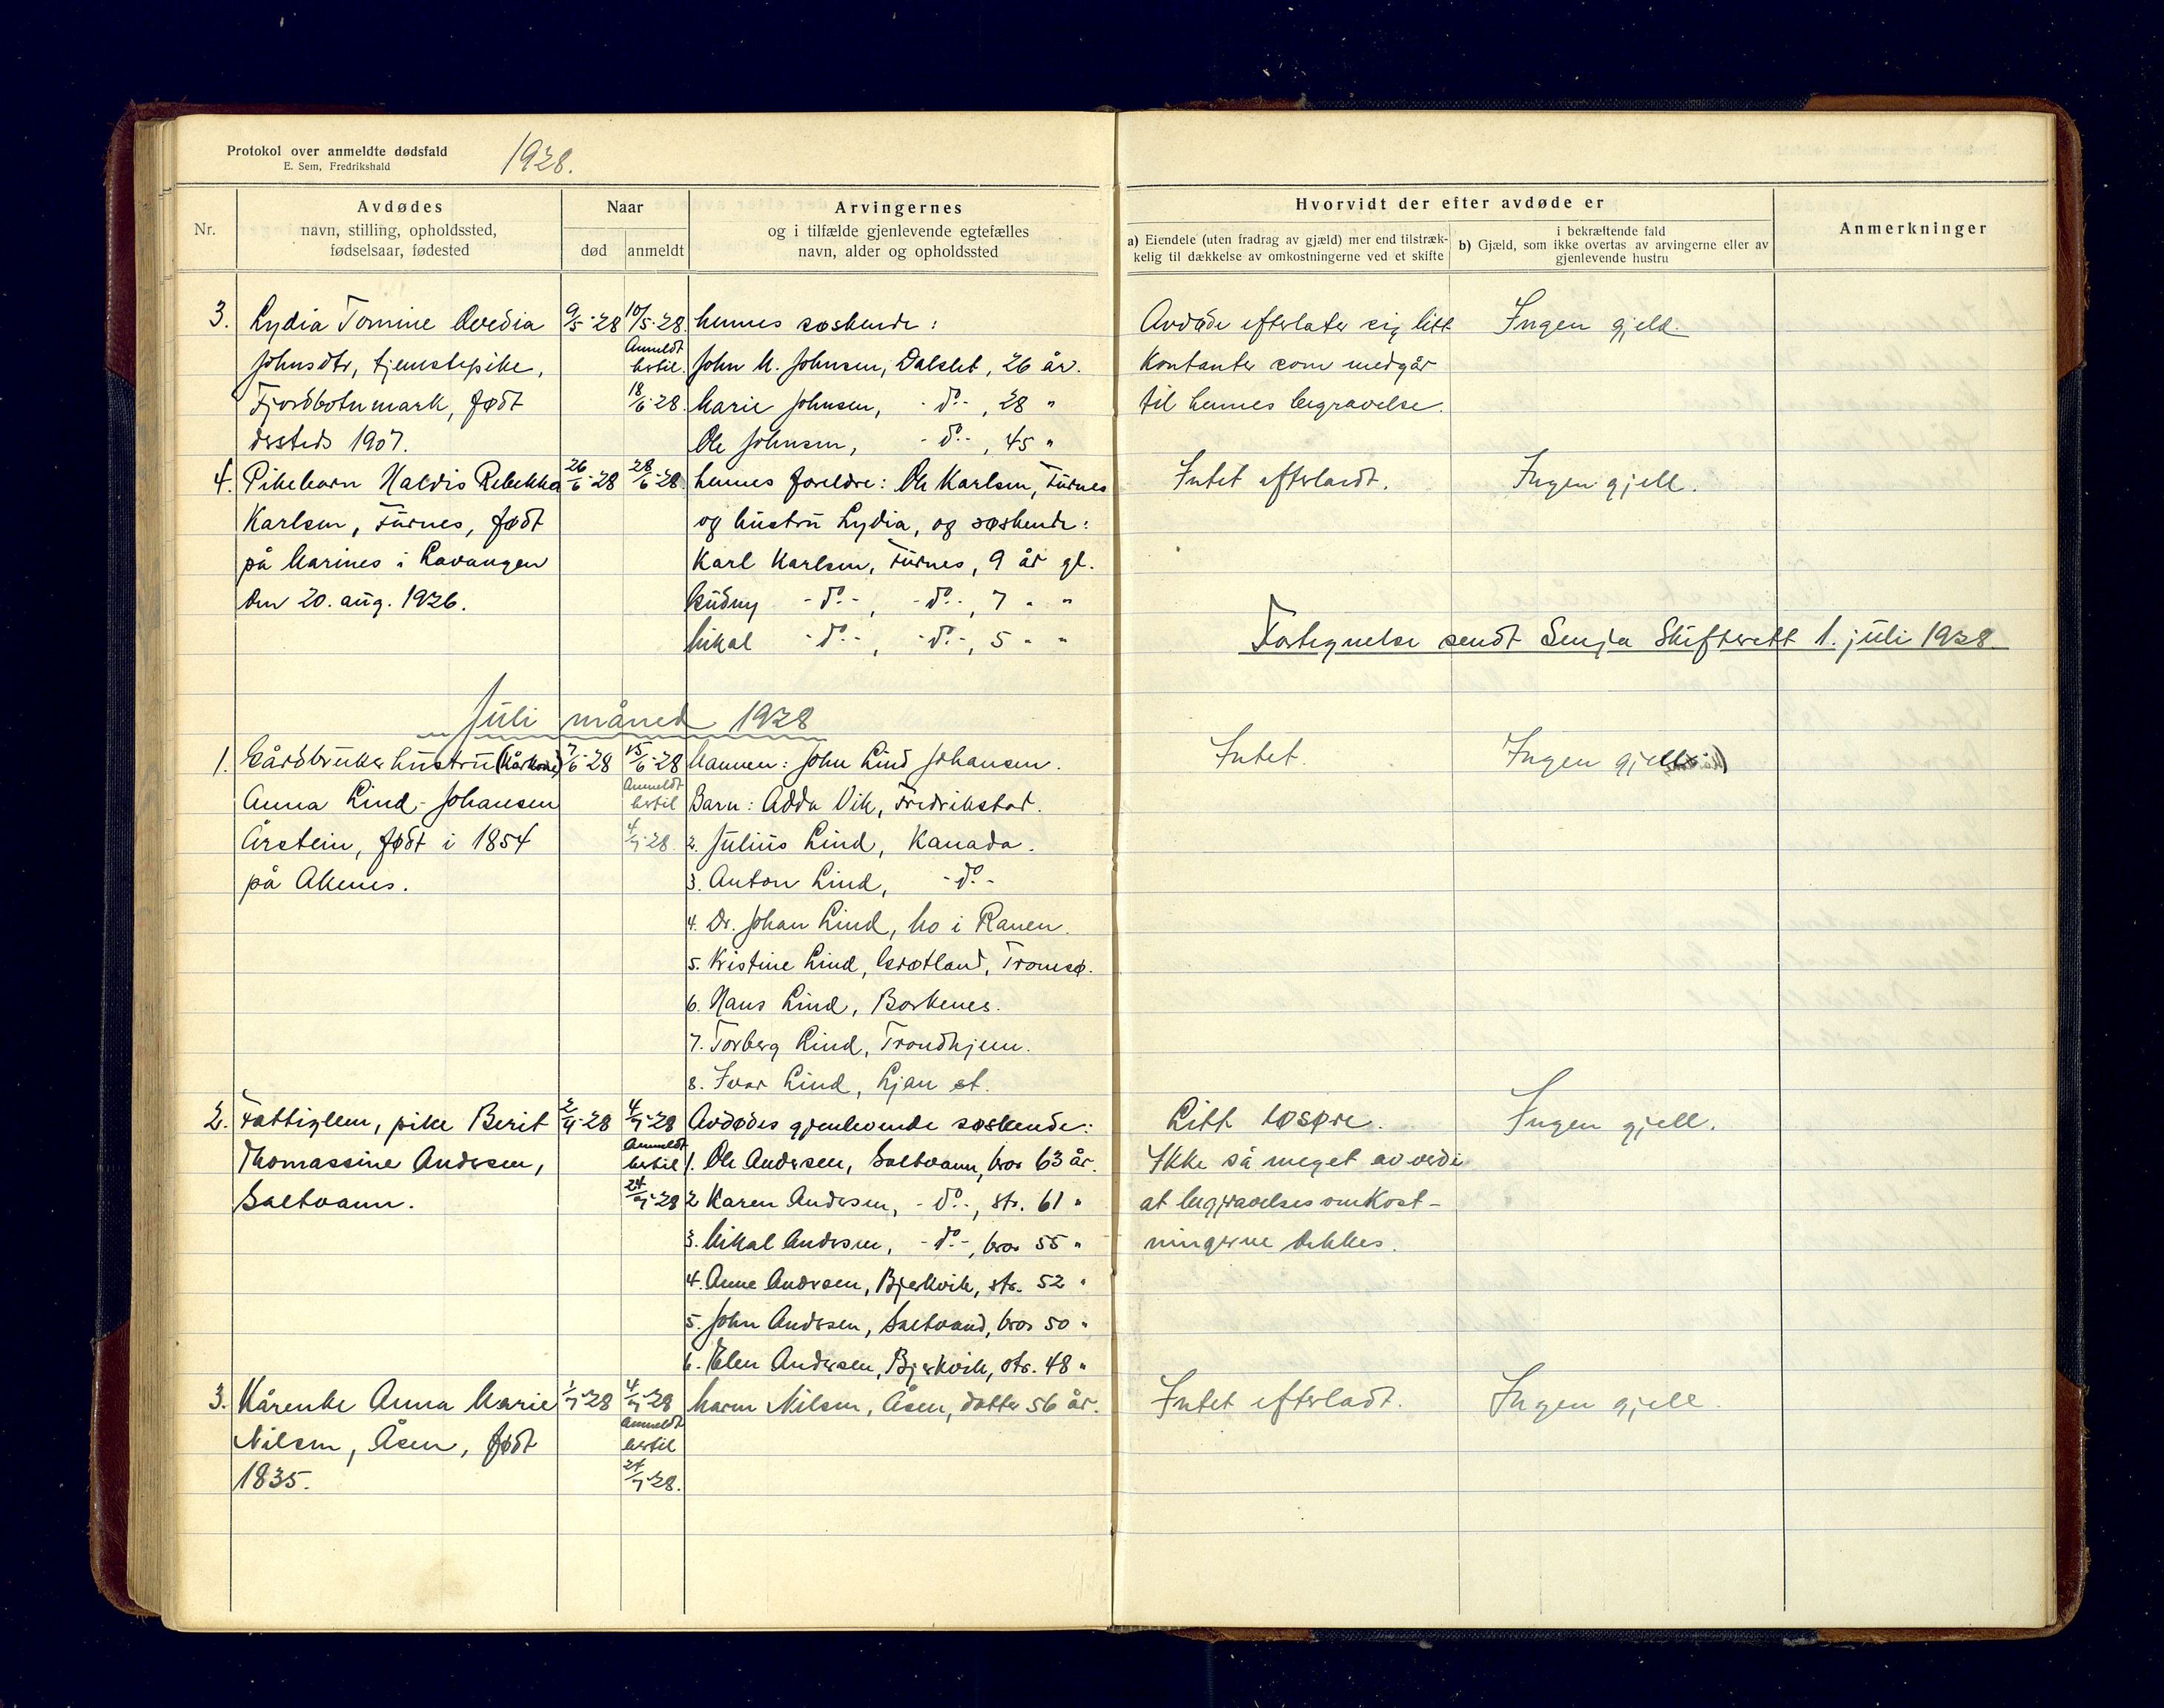 Protokol over anmeldte dødsfald
E. Sem, Fredrikshald
1928.
Nr.
Avdødes
navn, stilling, opholdssted,
fødselsaar, fødested
Naar
død
anmeldt
Arvingernes
og i tilfælde gjenlevende egtefælles
navn, alder og opholdssted
Hvorvidt der efter avdøde er
a) Eiendele (uten fradrag av gjæld) mer end tilstræk-
kelig til dækkelse av omkostningerne ved et skifte
i bekræftende fald
b) Gjæld, som ikke overtas av arvingerne eller av
gjenlevende hustru
Anmerkninger
3. Lydia Tomine Ovedia 9/5-28 10/5-28. Hennes søskende: Avdøde efterlater sig litt Ingen gjeld.
Johnsdtr, tjenestepike, Anmeldt hertil. John M. Johnsen, Dalslet, 26 år. Kontanter som medgår
Fjordbotnmark, født 18/6-28. Marie Johnsen, -do.-, 28 " til hennes begravelse.
dersteds 1907. Ole Johnsen, -do.-, 45 "
4. Pikebarn Haldis Rebekka 26/6-28 28/6-28. Hennes foreldre: Ole Karlsen, Furnes Intet efterladt. Ingen gjell.
Karlsen, Furnes, født og hustru Lydia, og søskende:
på Marines i Lavangen Karl Karlsen, Furnes, 9 år gl.
den 20. aug. 1926. Gudny -do.-, -do.-, 7 " "
Mikal -do.-, -do.-, 5 " "
Fortegnelse sendt Senja Skifterett 1. juli 1928.
Juli måned 1928
1. Gårdbrukerhustru (Kårkone) 7/6-28 15/6-28 Mannen: John Lind Johansen. Intet. Ingen gjell
Anna Lind-Johansen Anmeldt hertil Barn: Adda Vik, Fredrikstad.
Årstein, født i 1854 4/7-28. 2. Julius Lind, Kanada.
på Akenes. 3. Anton Lind, -do.-
4. Dr. Johan Lind, Mo i Ranen.
5. Kristine Lind, Grøtland, Tromsø.
6. Hans Lind, Borkenes.
7. Torberg Lind, Trondhjem.
8. Ivar Lind, Ljan st.
2. Fattiglem, pike Berit 2/7-28 4/7-28 Avdødes gjenlevende søskende: Litt løsøre. Ingen gjell.
Thomassine Andersen, Anmeldt hertil 1. Ole Andersen, Saltvann, bror 63 år. Ikke så meget av verdi
Saltvann. 24/7-28 2 Karen Andersen, -do.-, str. 61 " at begravelsesomkost-
3. Mikal Andersen, -do.-, bror 55 " ningerne dekkes.
4. Anne Andersen, Bjerkvik, str. 52 "
5. John Andersen, Saltvand, bror 50 "
6. Elen Andersen, Bjerkvik, str. 48 "
3. Kårenke Anna Marie 1/7-28 4/7-28 Maren Nilsen, Åsen, datter 56 år. Intet efterladt. Ingen gjell.
Nilsen, Åsen, født Anmeldt hertil
1835. 24/7-28.